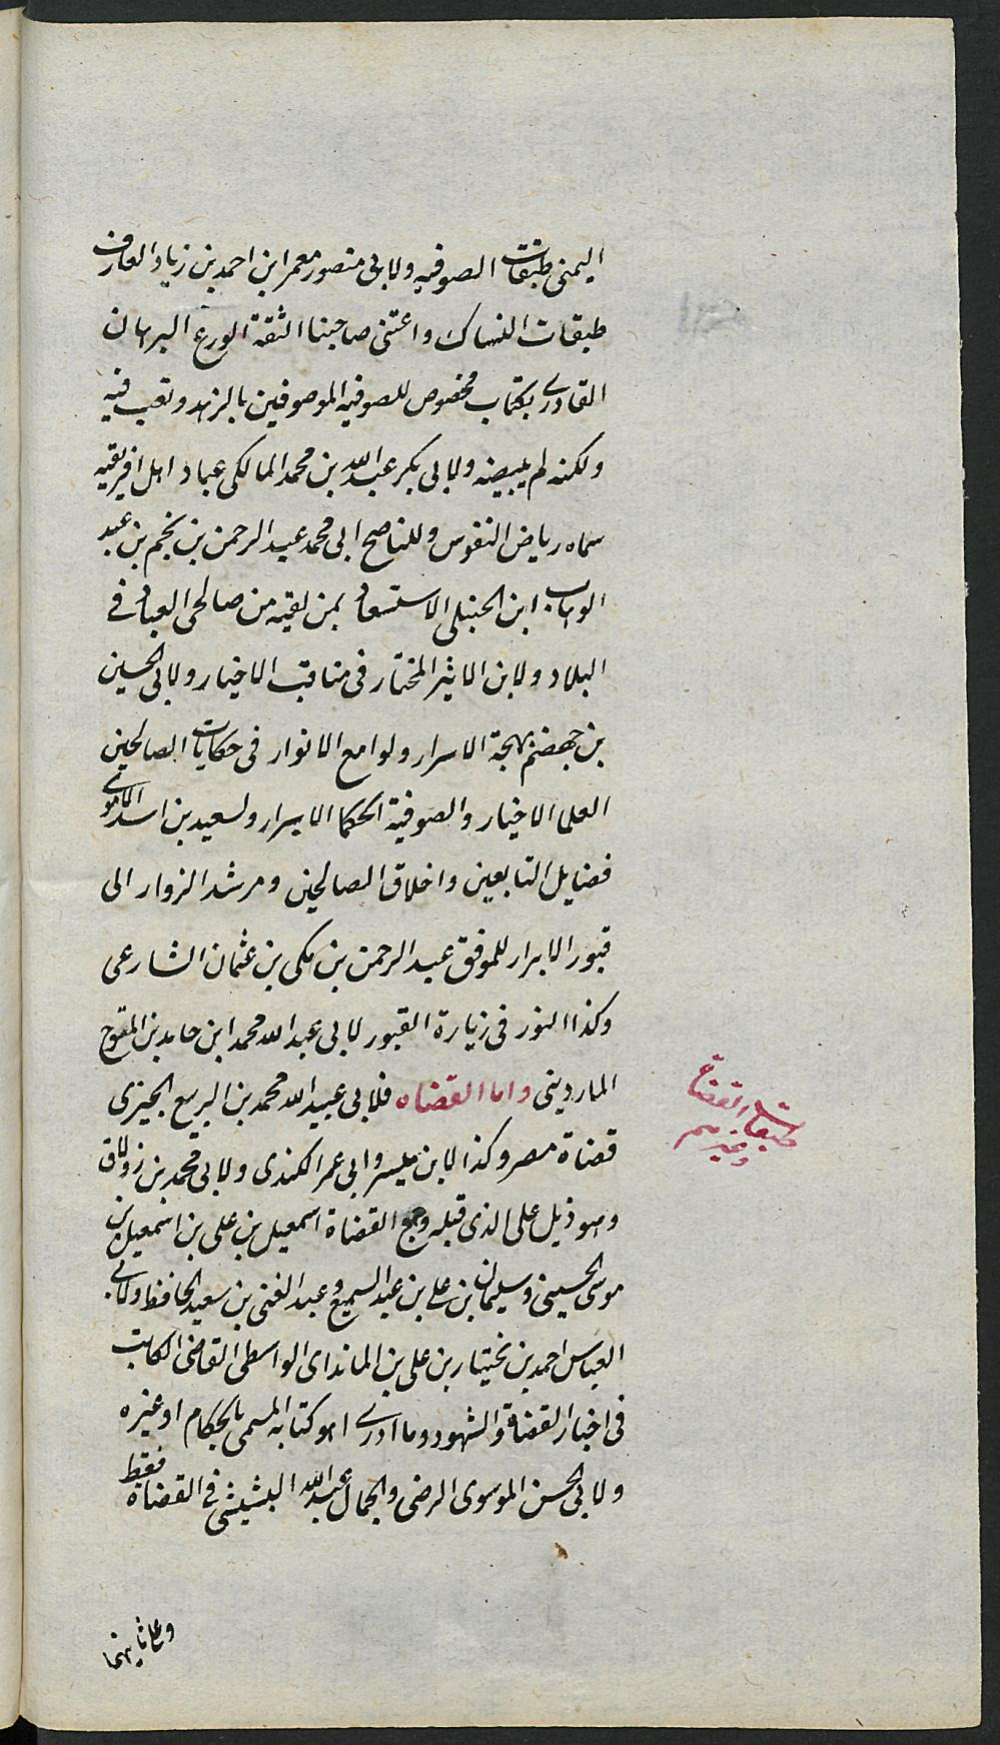 اليمنى طبقات الصوفيه ولابى منصور معمر ابن احمد بن زياد العارف
طبقات النساك واعتنى صاحبنا الثقة الورع البرهان
القادرى بكتاب مخصوص للصوفيه الموصوفين بالزهد وتعب فيه
ولكنه لم يبيضه ولابى بكر عبد الله بن محمد المالكى عباد اهل افريقيه
سماه رياض النفوس وللناصح ابى محمد عبد الرحمن بن نجم بن عبد
الوهاب ابن الحنبلى الاستسعاد بمن لقيته من صالحى العباد فى
البلاد ولابن الاثير المختار فى مناقب الاخيار ولابى الحسين
بن جهضم بهجة الاسرار ولوامع الانوار فى حكايات الصالحين
العلما الاخيار والصوفية الحكما الابرار ولسعيد بن اسد الاموى
فضايل التابعين واخلاق الصالحين ومرشد الزوار الى
قبور الابرار للموفق عبد الرحمن بن مكى بن عثمان الشارعى
وكذا النور فى زيارة القبور لابى عبد الله محمد ابن حامد بن المقوح
الماردينى واما القضاه فلابى عبيد الله محمد بن الربيع الجيزى
قضاة مصر وكذا لابن ميسر وابى عمر الكندى ولابى محمد بن زولاق
وهو ذيل على الذى قبله وجمع القضاة اسمعيل بن على بن اسمعيل بن
موسى الحسينى وسليمان بن على بن عبد السميع وعبد الغنى بن سعيد الحافظ ولابى
العباس احمد بن بختيار بن على بن الماندای الواسطى القاضى الكاتب
فى اخبار القضاة والشهود وما ادرى اهو كتابه المسمى بالحكام او غيره
ولابى الحسن الموسوى الرضى والجمال عبد الله البشبيشى فى القضاة فقط
وعاثانيهما
طبقات القضاة
وغيرهم